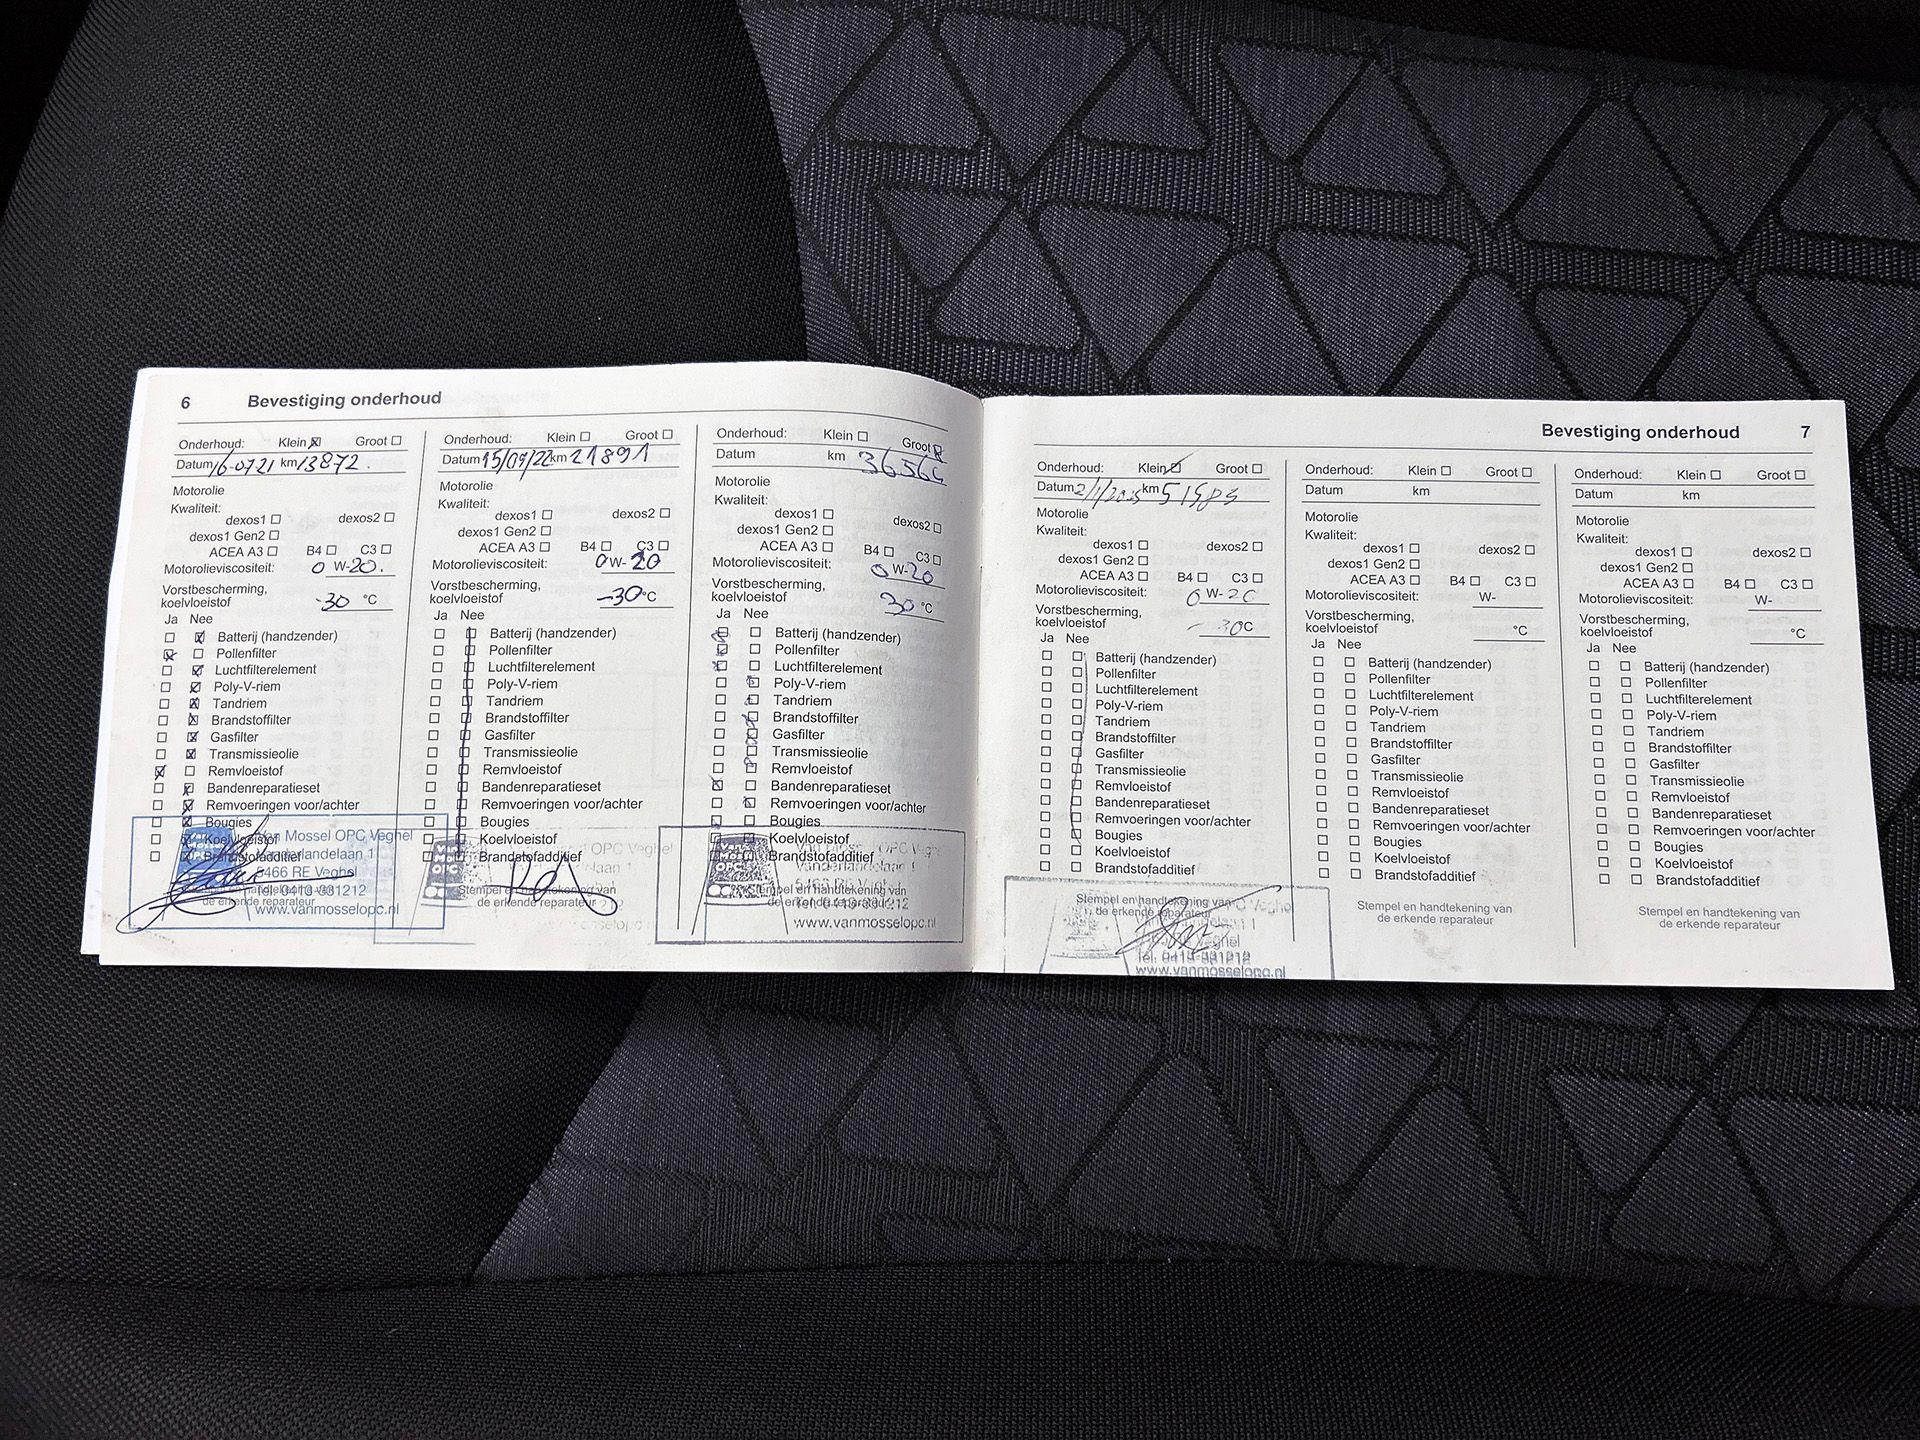 6 Bevestiging onderhoud
Onderhoud: Klein Groot
Datum 16-07-21 km 13872.
Motorolie
Kwaliteit:
dexos1 dexos2
dexos1 Gen2
ACEA A3 B4 C3
Motorolieviscositeit: 0 W-20.
Vorstbescherming,
koelvloeistof -30 °C
Ja Nee
Batterij (handzender)
Pollenfilter
Luchtfilterelement
Poly-V-riem
Tandriem
Brandstoffilter
Gasfilter
Transmissieolie
Remvloeistof
Bandenreparatieset
Remvoeringen voor/achter
Bougies
Koelvloeistof
Brandstofadditief
Van Mossel OPC Veghel
5466 RE Veghel
Tel. 0413-331212
de erkende reparateur
www.vanmosselopc.nl
Onderhoud: Klein Groot
Datum 15/07/22 km 21891
Motorolie
Kwaliteit:
dexos1 dexos2
dexos1 Gen2
ACEA A3 B4 C3
Motorolieviscositeit: 0 W-20
Vorstbescherming,
koelvloeistof -30 °C
Ja Nee
Batterij (handzender)
Pollenfilter
Luchtfilterelement
Poly-V-riem
Tandriem
Brandstoffilter
Gasfilter
Transmissieolie
Remvloeistof
Bandenreparatieset
Remvoeringen voor/achter
Bougies
Koelvloeistof
Brandstofadditief
Stempel en handtekening van
de erkende reparateur
Onderhoud: Klein Groot
Datum km
Motorolie
Kwaliteit:
dexos1 dexos2
dexos1 Gen2
ACEA A3 B4 C3
Motorolieviscositeit: 0 W-20
Vorstbescherming,
koelvloeistof 30 °C
Ja Nee
Batterij (handzender)
Pollenfilter
Luchtfilterelement
Poly-V-riem
Tandriem
Brandstoffilter
Gasfilter
Transmissieolie
Remvloeistof
Bandenreparatieset
Remvoeringen voor/achter
Bougies
Koelvloeistof
Brandstofadditief
Stempel en handtekening van
de erkende reparateur
www.vanmosselopc.nl
Bevestiging onderhoud 7
Onderhoud: Klein Groot
Datum km
Motorolie
Kwaliteit:
dexos1 dexos2
dexos1 Gen2
ACEA A3 B4 C3
Motorolieviscositeit: 0 W-20
Vorstbescherming,
koelvloeistof -30 °C
Ja Nee
Batterij (handzender)
Pollenfilter
Luchtfilterelement
Poly-V-riem
Tandriem
Brandstoffilter
Gasfilter
Transmissieolie
Remvloeistof
Bandenreparatieset
Remvoeringen voor/achter
Bougies
Koelvloeistof
Brandstofadditief
Stempel en handtekening van
de erkende reparateur
Tel. 0413-331212
www.vanmosselopc.nl
Onderhoud: Klein Groot
Datum km
Motorolie
Kwaliteit:
dexos1 dexos2
dexos1 Gen2
ACEA A3 B4 C3
Motorolieviscositeit: W-
Vorstbescherming,
koelvloeistof °C
Ja Nee
Batterij (handzender)
Pollenfilter
Luchtfilterelement
Poly-V-riem
Tandriem
Brandstoffilter
Gasfilter
Transmissieolie
Remvloeistof
Bandenreparatieset
Remvoeringen voor/achter
Bougies
Koelvloeistof
Brandstofadditief
Stempel en handtekening van
de erkende reparateur
Onderhoud: Klein Groot
Datum km
Motorolie
Kwaliteit:
dexos1 dexos2
dexos1 Gen2
ACEA A3 B4 C3
Motorolieviscositeit: W-
Vorstbescherming,
koelvloeistof °C
Ja Nee
Batterij (handzender)
Pollenfilter
Luchtfilterelement
Poly-V-riem
Tandriem
Brandstoffilter
Gasfilter
Transmissieolie
Remvloeistof
Bandenreparatieset
Remvoeringen voor/achter
Bougies
Koelvloeistof
Brandstofadditief
Stempel en handtekening van
de erkende reparateur